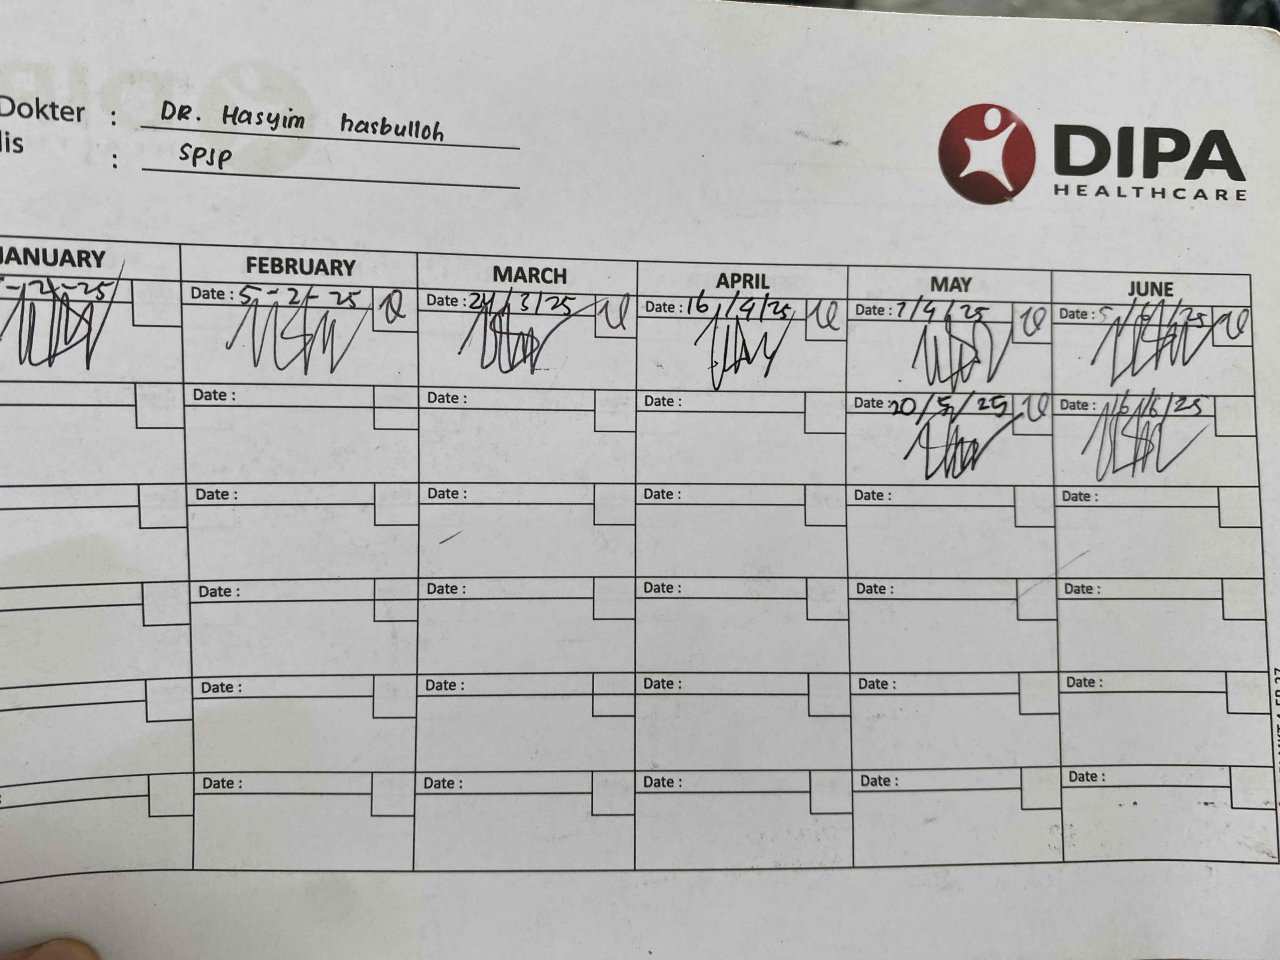 Dokter : DR. Hasyim hasbulloh
lis : SPJP
DIPA
HEALTHCARE
JANUARY FEBRUARY MARCH APRIL MAY JUNE
Date : 5-2-25 Date : 24/3/25 Date : 16/4/25 Date : 7/4/25 Date : 5/6/25
Date : Date : Date : Date : 20/5/25 Date : 16/6/25
Date : Date : Date : Date : Date :
Date : Date : Date : Date : Date :
Date : Date : Date : Date : Date :
Date : Date : Date : Date : Date :